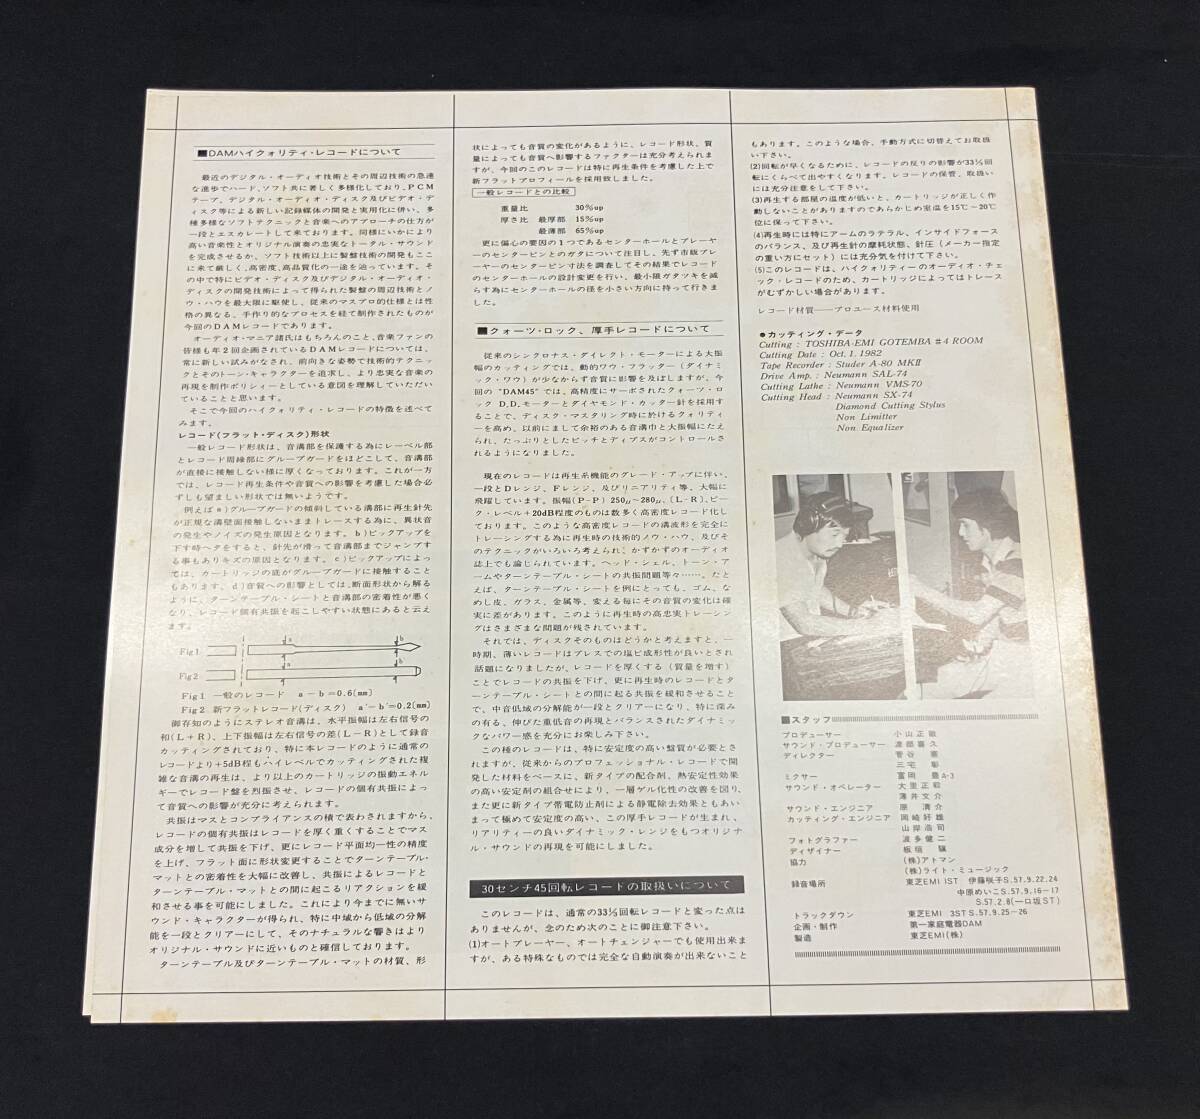 ■DAMハイクォリティ・レコードについて
最近のデジタル・オーディオ技術とその周辺技術の急速
な進歩でハード、ソフト共に著しく多様化しており、PCM
テープ、デジタル・オーディオ・ディスク及びビデオ・デ
ィスク等による新しい記録媒体の開発と実用化に伴い、多
種多様なソフトテクニックと音楽へのアプローチの仕方が
一段とエスカレートして来ております。同様にいかにより
高い音楽性とオリジナル演奏の忠実なトータル・サウンド
を完成させるか、ソフト技術以上に製盤技術の開発もここ
に来て厳しく、高密度、高品質化の一途を辿っています。そ
の中で特にビデオ・ディスク及びデジタル・オーディオ・
ディスクの開発技術によって得られた製盤の周辺技術とノ
ウ・ハウを最大限に駆使し、従来のマスプロ的仕様とは性
格の異なる、手作り的なプロセスを経て制作されたものが
今回のDAMレコードであります。
オーディオ・マニア諸氏はもちろんのこと、音楽ファンの
皆様も年2回企画されているDAMレコードについては、
常に新しい試みがなされ、前向きな姿勢で技術的テクニッ
クとそのトーン・キャラクターを追求し、より忠実な音楽の
再現を制作ポリシィーとしている意図を理解していただい
ていることと思います。
そこで今回のハイクォリティ・レコードの特徴を述べて
みます。
レコード(フラット・ディスク)形状
一般レコード形状は、音溝部を保護する為にレーベル部
とレコード周縁部にグルーブガードをほどこして、音溝部
が直接に接触しない様に厚くなっております。これが一方
では、レコード再生条件や音質への影響を考慮した場合必
ずしも望ましい形状では無いようです。
例えばa)グルーブガードの傾斜している溝部に再生針先
が正規な溝壁面接触しないままトレースする為に、異状音
の発生やノイズの発生原因となります。b)ピックアップを
下す時ヘタをすると、針先が滑って音溝部までジャンプす
る事もありキズの原因となります。c)ピックアップによっ
ては、カートリッジの底がグルーブガードに接触すること
もあります。d)音質への影響としては、断面形状から解る
ように、ターンテーブル・シートと音溝部の密着性が悪く
なり、レコード個有共振を起こしやすい状態にあると云え
ます。
Fig1
a
b
Fig2
a
b
Fig1 一般のレコード a−b=0.6(mm)
Fig2 新フラットレコード(ディスク) a′−b′=0.2(mm)
御存知のようにステレオ音溝は、水平振幅は左右信号の
和(L+R)、上下振幅は左右信号の差(L−R)として録音
カッティングされており、特に本レコードのように通常の
レコードより+5dB程もハイレベルでカッティングされた複
雑な音溝の再生は、より以上のカートリッジの振動エネル
ギーでレコード盤を烈振させ、レコードの個有共振によっ
て音質への影響が充分に考えられます。
共振はマスとコンプライアンスの積で表わされますから、
レコードの個有共振はレコードを厚く重くすることでマス
成分を増して共振を下げ、更にレコード平面均一性の精度
を上げ、フラット面に形状変更することでターンテーブル・
マットとの密着性を大幅に改善し、共振によるレコードと
ターンテーブル・マットとの間に起こるリアクションを緩
和させる事を可能にしました。これにより今までに無いサ
ウンド・キャラクターが得られ、特に中域から低域の分解
能を一段とクリアーにして、そのナチュラルな響きはより
オリジナル・サウンドに近いものと確信しております。
ターンテーブル及びターンテーブル・マットの材質、形
状によっても音質の変化があるように、レコード形状、質
量によっても音質へ影響するファクターは充分考えられま
すが、今回のこのレコードは特に再生条件を考慮した上で
新フラットプロフィールを採用致しました。
一般レコードとの比較
重量比 30%up
厚さ比 最厚部 15%up
最薄部 65%up
更に偏心の要因の1つであるセンターホールとプレーヤ
ーのセンターピンとのガタについて注目し、先ず市販プレ
ーヤーのセンターピン寸法を調査してその結果でレコード
のセンターホールの設計変更を行い、最小限ガタツキを減
らす為にセンターホールの径を小さい方向に持って行きま
した。
■クォーツ・ロック、厚手レコードについて
従来のシンクロナス・ダイレクト・モーターによる大振
幅のカッティングでは、動的ワウ・フラッター(ダイナミ
ック・ワウ)が少なからず音質に影響を及ぼしますが、今
回の“DAM45”では、高精度にサーボされたクォーツ・ロ
ック D.D.モーターとダイヤモンド・カッター針を採用す
ることで、ディスク・マスタリング時に於けるクォリティ
ーを高め、以前にまして余裕のある音溝巾と大振幅にたえ
られ、たっぷりとしたピッチとディプスがコントロールさ
れるようになりました。
現在のレコードは再生系機能のグレード・アップに伴い、
一段とDレンジ、Fレンジ、及びリニアリティ等、大幅に
飛躍しています。振幅(P-P) 250μ〜280μ、(L-R)、ピー
ク・レベル+20dB程度のものは数多く高密度レコード化し
ております。このような高密度レコードの溝波形を完全に
トレーシングする為に再生時の技術的ノウ・ハウ、及びそ
のテクニックがいろいろ考えられ、かずかずのオーディオ
誌上でも論じられています。ヘッド・シェル、トーン・ア
ームやターンテーブル・シートの共振問題等々……。たと
えば、ターンテーブル・シートを例にとっても、ゴム、な
めし皮、ガラス、金属等、変える毎にその音質の変化は確
実に差があります。このように再生時の高忠実トレーシン
グはさまざまな問題が残されています。
それでは、ディスクそのものはどうかと考えますと、一
時期、薄いレコードはプレスでの塩ビ成形性が良いとされ
話題になりましたが、レコードを厚くする(質量を増す)
ことでレコードの共振を下げ、更に再生時のレコードとタ
ーンテーブル・シートとの間に起る共振を緩和させること
で、中音低域の分解能が一段とクリアーになり、特に深み
の有る、伸びた重低音の再現とバランスされたダイナミッ
クなパワー感を充分にお楽しみ下さい。
この種のレコードは、特に安定度の高い盤質が必要とさ
れますが、従来からのプロフェッショナル・レコードで開
発した材料をベースに、新タイプの配合剤、熱安定性効果
の高い安定剤の組合せにより、一層ゲル化性の改善を図り、
また更に新タイプ帯電防止剤による静電除去効果ともあい
まって極めて安定度の高い、この厚手レコードが生まれ、
リアリティーの良いダイナミック・レンジをもつオリジナ
ル・サウンドの再現を可能にしました。
30センチ45回転レコードの取扱いについて
このレコードは、通常の33⅓回転レコードと変った点は
ありませんが、念のため次のことに御注意下さい。
(1)オートプレーヤー、オートチェンジャーでも使用出来ま
すが、ある特殊なものでは完全な自動演奏が出来ないこと
もあります。このような場合、手動方式に切替えてお取扱
い下さい。
(2)回転が早くなるために、レコードの反りの影響が33⅓回
転にくらべて出やすくなります。レコードの保管、取扱い
には充分注意をして下さい。
(3)再生する部屋の温度が低いと、カートリッジが正しく作
動しないことがありますのであらかじめ室温を15℃〜20℃
位に保って下さい。
(4)再生時には特にアームのラテラル、インサイドフォース
のバランス、及び再生針の摩耗状態、針圧(メーカー指定
の重い方にセット)には充分気を付けて下さい。
(5)このレコードは、ハイクォリティーのオーディオ・チェ
ック・レコードのため、カートリッジによってはトレース
がむずかしい場合があります。
レコード材質――プロユース材料使用
●カッティング・データ
Cutting : TOSHIBA-EMI GOTEMBA #4 ROOM
Cutting Date : Oct. 1. 1982
Tape Recorder : Studer A-80 MKII
Drive Amp. : Neumann SAL-74
Cutting Lathe : Neumann VMS-70
Cutting Head : Neumann SX-74
Diamond Cutting Stylus
Non Limitter
Non Equalizer
■スタッフ
プロデューサー 小山正敏
サウンド・プロデューサー 渡部喜久
ディレクター 菅谷憲
三宅彰
ミクサー 富岡豊A-3
サウンド・オペレーター 大里正和
薄井文介
サウンド・エンジニア 原清介
カッティング・エンジニア 岡崎好雄
山岸浩司
フォトグラファー 波多健二
ディザイナー 板垣 
協力 (株)アトマン
(株)ライト・ミュージック
録音場所 東芝EMI 1ST 伊藤咲子S.57.9.22.24
中原めいこS.57.9.16-17
S.57.2.8(一口坂ST)
トラックダウン 東芝EMI 3ST S.57.9.25-26
企画・制作 第一家庭電器DAM
製造 東芝EMI(株)